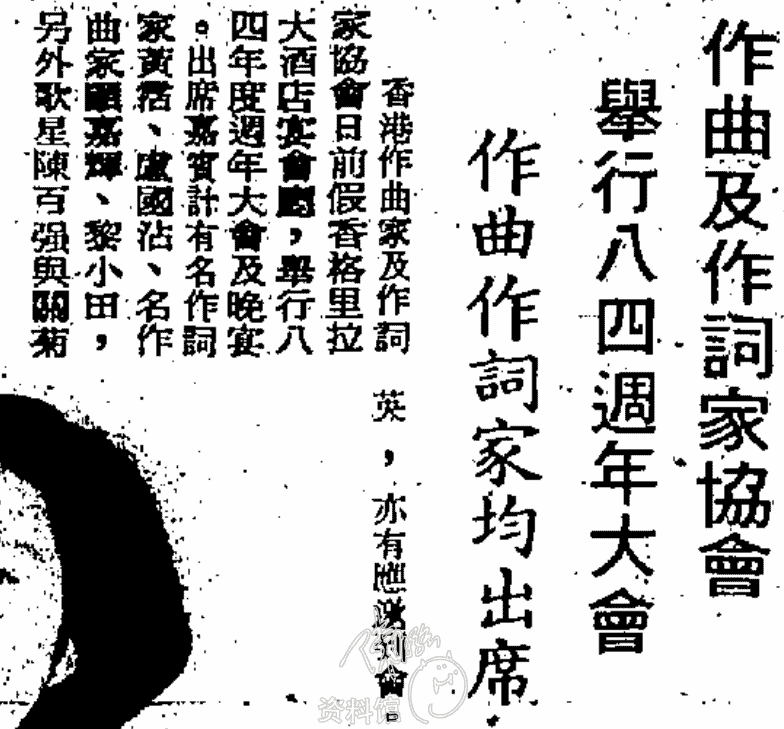 作曲及作詞家協會
舉行八四週年大會
作曲作詞家均出席
香港作曲家及作詞
家協會日前假香格里拉
大酒店宴會廳，舉行八
四年度週年大會及晚宴
。出席嘉賓計有名作詞
家黃霑、盧國沾、名作
曲家顧嘉輝、黎小田，
另外歌星陳百强與關菊
英，亦有應邀到會。
资料馆